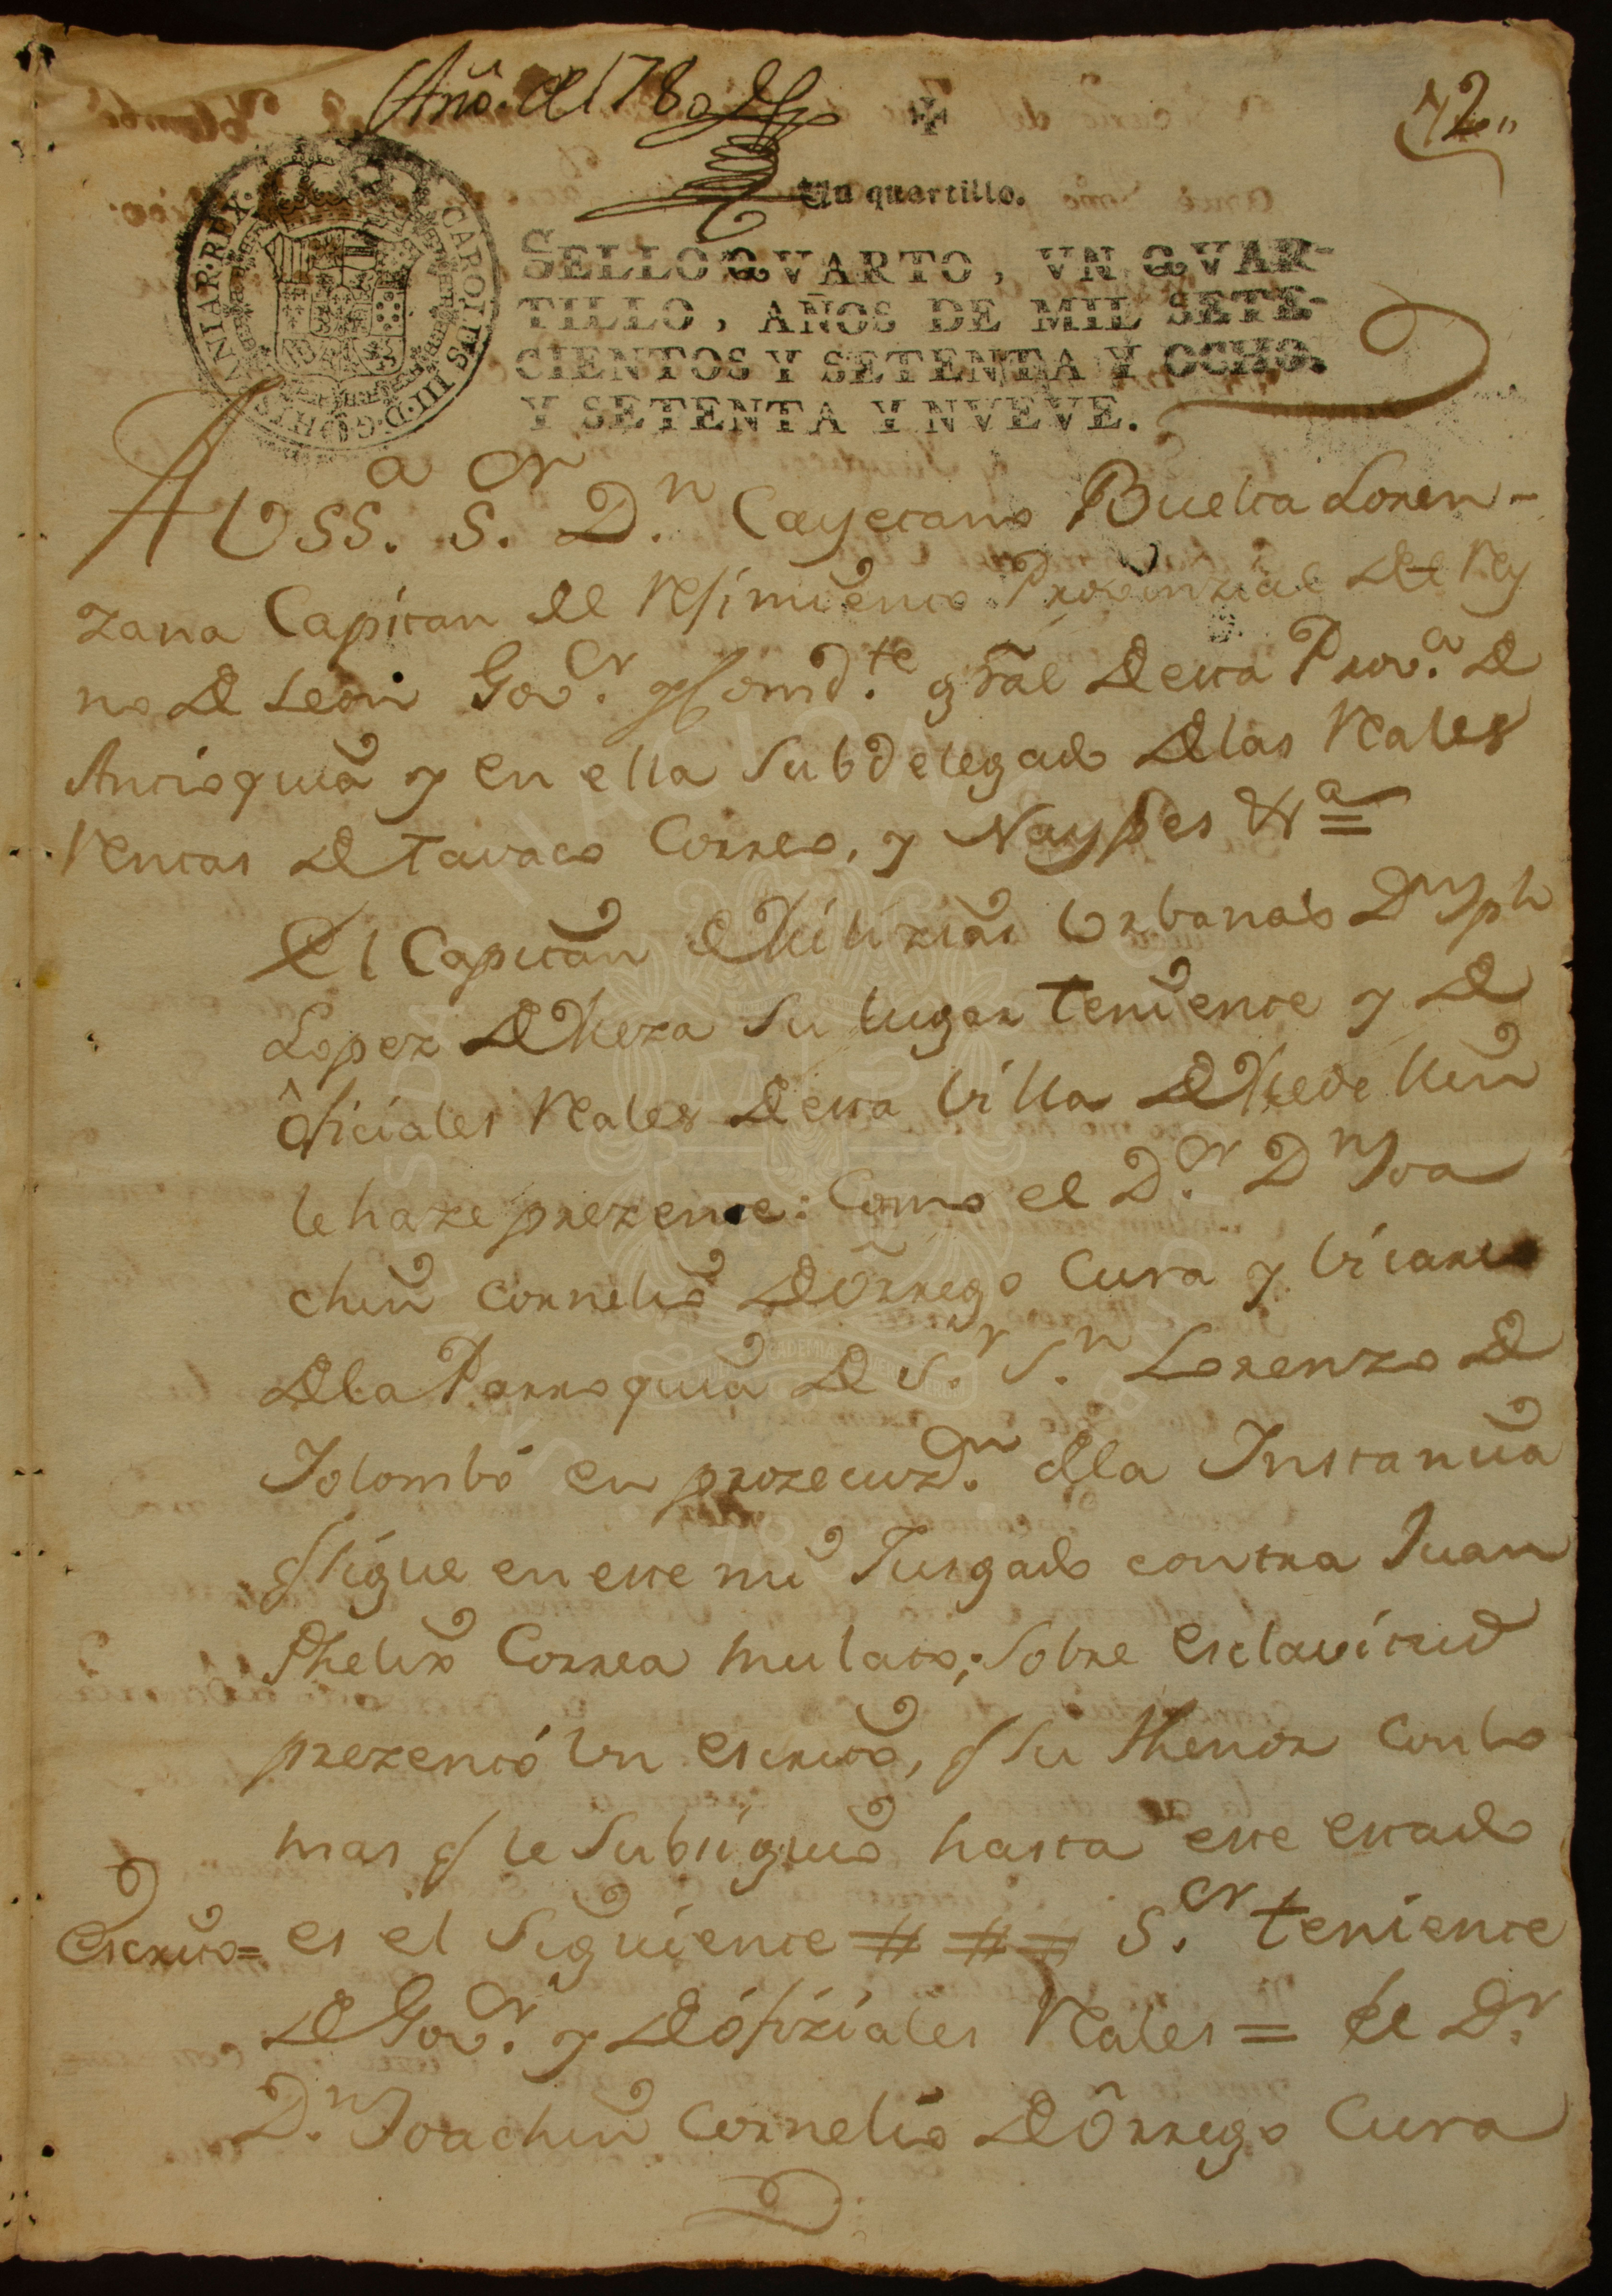 Año. de 1780
72
Un quartillo.
SELLO QVARTO, VN QVAR-
TILLO, AÑOS DE MIL SETE-
CIENTOS Y SETENTA Y OCHO.
Y SETENTA Y NVEVE.
CAROLUS III D. G. HISPANIAR. REX
A USSª. S.ºʳ Dⁿ. Cayetano Buelta Loren-
zana Capitan del Regimiento Provinzial del Rey
no de Leon Govºʳ. y Comdᵗᵉ. gràl de esta Provª. de
Antioquia y en ella Subdelegado de las Reales
Rentas de Tavaco Correo, y Naypes &ª =
El Capitan de Milizias Urbanas Dⁿ Jph
Lopez de Meza su lugar teniente y de
ôficiales Reales de esta Villa de Medellin
le haze prezente: Como el Dºʳ. Dⁿ Joa
chin Cornelio de Õrrego Cura y Vicario
de la Parroquia de Sʳ. Sⁿ. Lorenzo de
Yolombó en prozecuzºⁿ. de la Instancia
q sigue en este mi Juzgado contra Juan
Phelix Correa mulato; sobre esclavitud
prezentó un escrito, q su thenor con lo
mas q le subsiguio hasta este estado
Escrito= es el siguiente = = = S.ºʳ teniente
de Govºʳ. y de ófiziales Reales = El Dʳ.
Dⁿ. Joachin Cornelio de Õrrego Cura